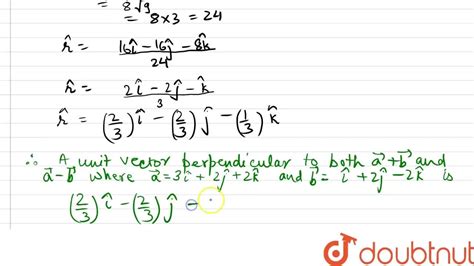 = 8√9
= 8×3 = 24
r̂ = 16î - 16ĵ - 8k̂ / 24
r̂ = 2î - 2ĵ - k̂ / 3
r̂ = (2/3) î - (2/3) ĵ - (1/3) k̂
∴ A unit vector perpendicular to both a⃗+b⃗ and
a⃗-b⃗ where a⃗=3î+2ĵ+2k̂ and b⃗= î+2ĵ-2k̂ is
(2/3) î - (2/3) ĵ -
doubtnut